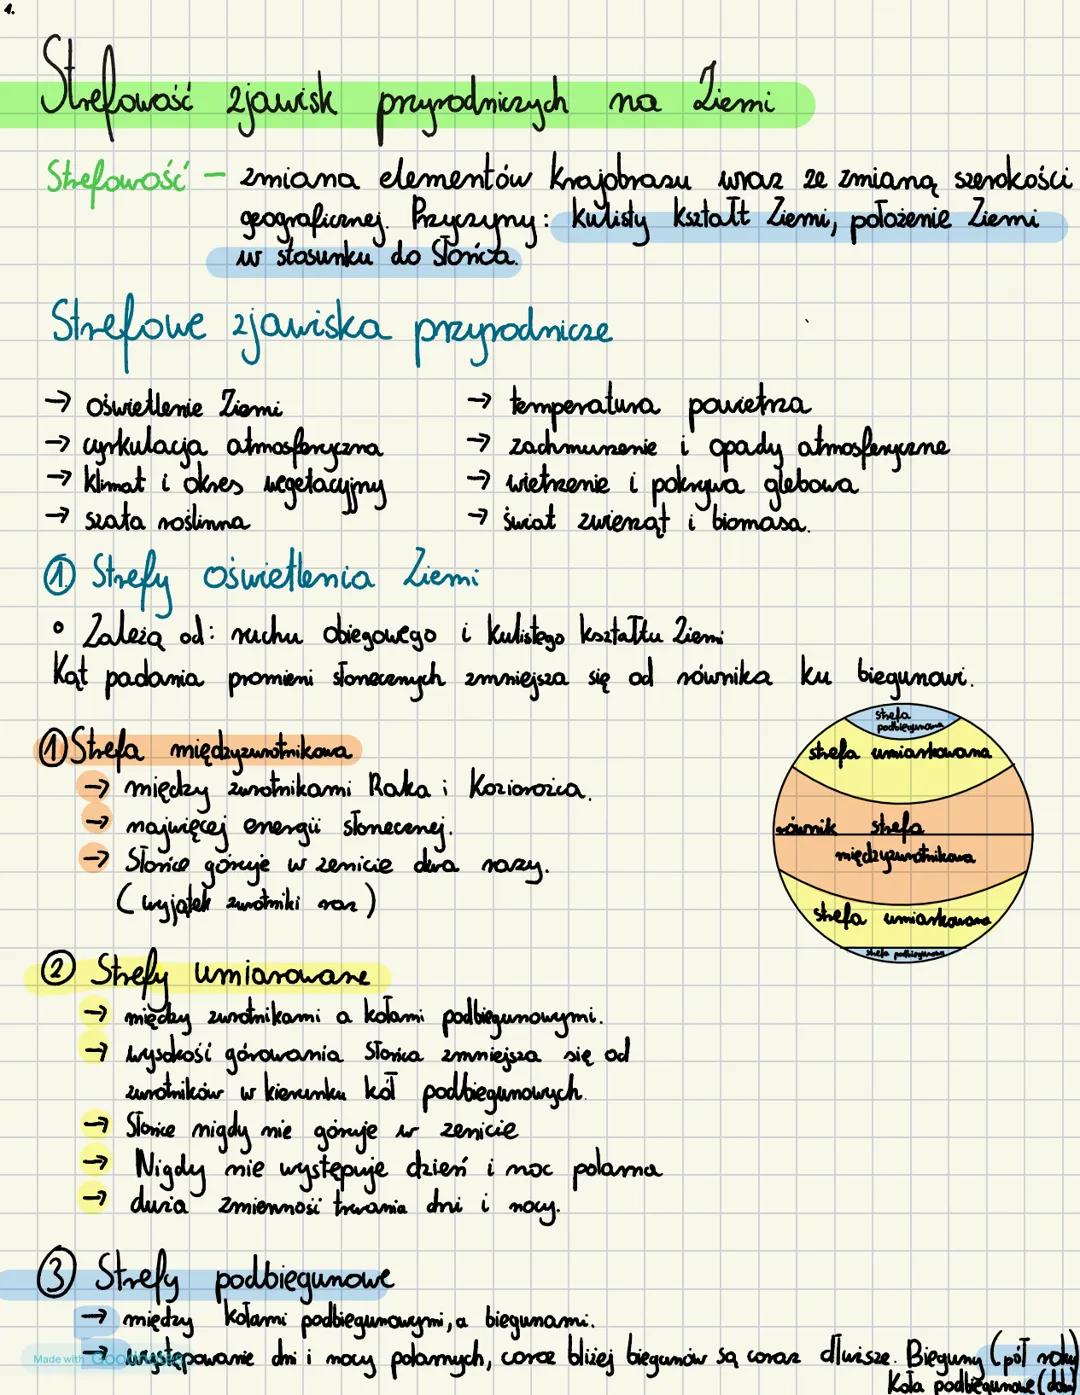 1.
Strefowość zjawisk przyrodniczych na Ziemi
Strefowość – zmiana elementów krajobrazu wraz ze zmianą szerokości
geograficznej. Przyczyny: kulisty kształt Ziemi, położenie Ziemi
w stosunku do Słońca.
Strefowe zjawiska przyrodnicze
→ oświetlenie Ziemi
→ cyrkulacja atmosferyczna
→ klimat i okres wegetacyjny
→ szata roślinna
→ temperatura powietrza
→ zachmurzenie i opady atmosferyczne
→ wietrzenie i pokrywa glebowa
→ świat zwierząt i biomasa.
1. Strefy oświetlenia Ziemi
• Zależą od: ruchu obiegowego i kulistego kształtu Ziemi
Kąt padania promieni słonecznych zmniejsza się od równika ku biegunowi.
1 Strefa międzyzwrotnikowa
→ między zwrotnikami Raka i Koziorożca.
→ najwięcej energii słonecznej.
→ Słońce góruje w zenicie dwa razy.
(wyjątek zwrotniki raz)
strefa
podbiegunowa
strefa umiarkowana
równik strefa
międzyzwrotnikowa
strefa umiarkowana
strefa podbiegunowa
2 Strefy umiarowane
→ między zwrotnikami a kołami podbiegunowymi.
→ wysokość górowania Słońca zmniejsza się od
zwrotników w kierunku kół podbiegunowych.
→ Słońce nigdy nie góruje w zenicie
→ Nigdy nie występuje dzień i noc polarna
→ duża zmienność trwania dni i nocy.
3 Strefy podbiegunowe
→ między kołami podbiegunowymi, a biegunami.
→ występowanie dni i nocy polarnych, coraz bliżej biegunów są coraz dłuższe. Bieguny (pół roku)
Koła podbiegunowe (doba)
Made with